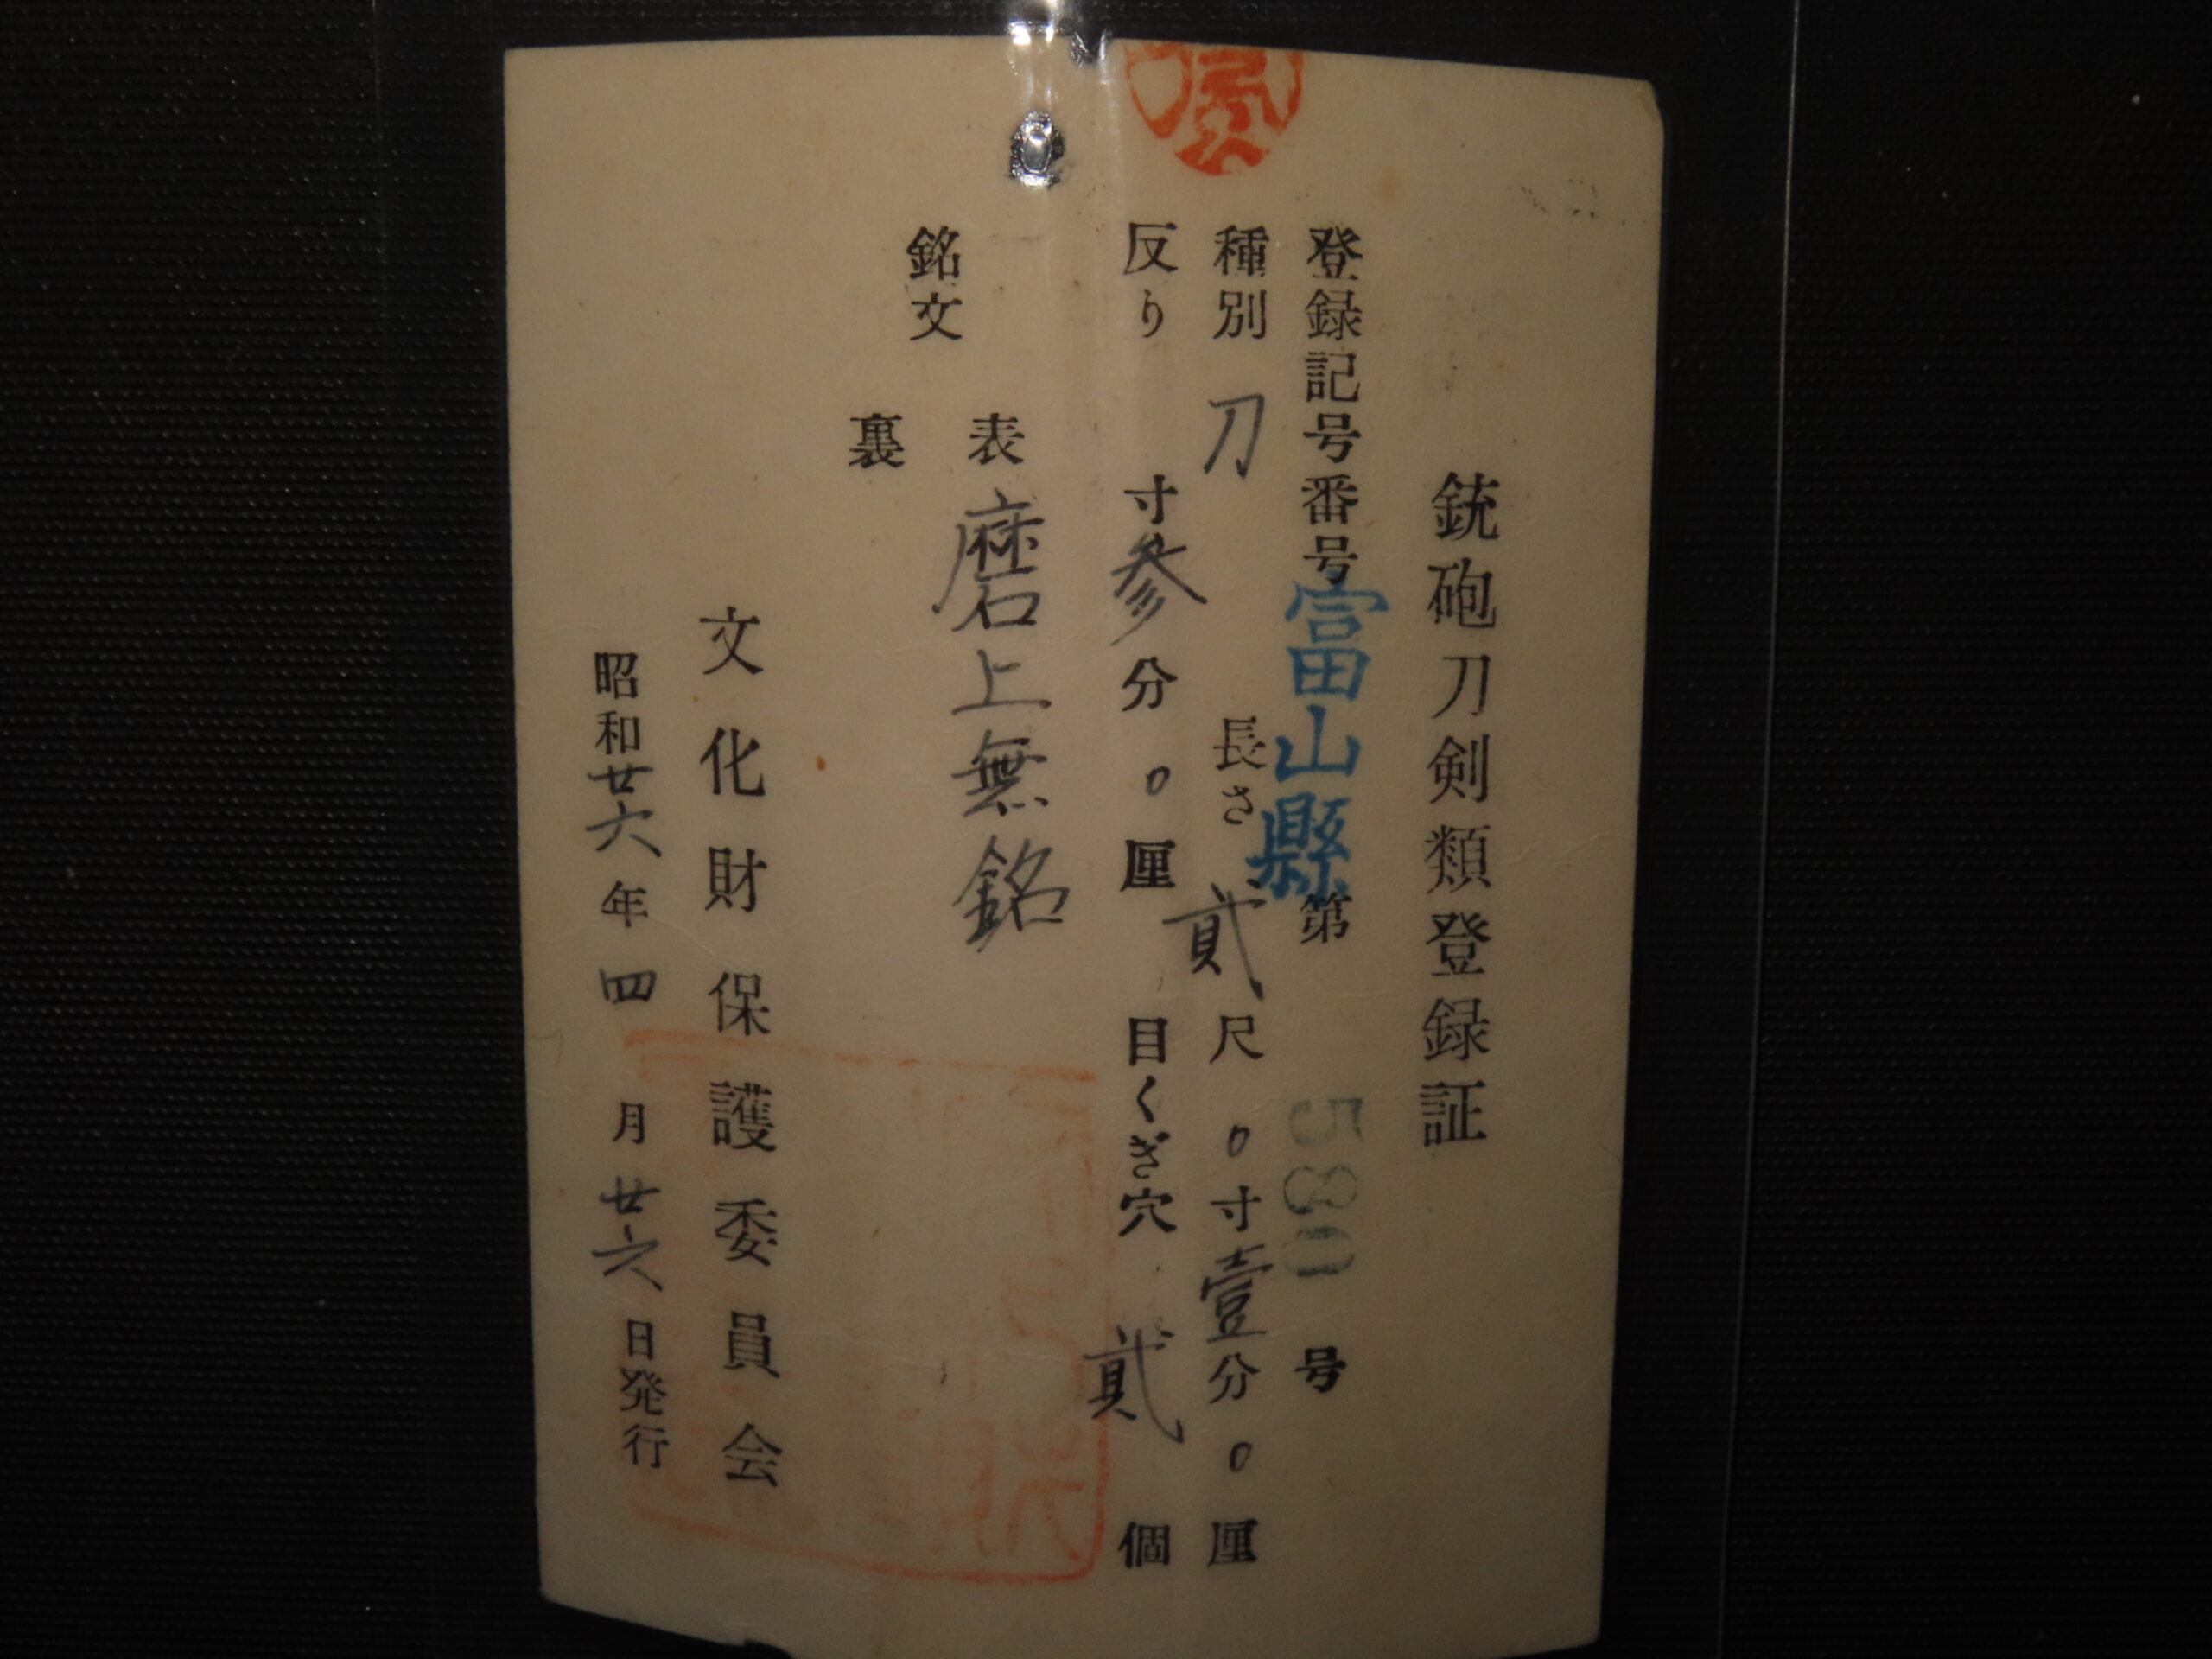 銃砲刀剣類登録証
登録記号番号富山縣第 580 号
種別 刀 長さ 貳尺 0寸壹分 0厘
反り 寸参分 0厘 目くぎ穴 貳 個
銘文
表 磨上無銘
裏
文化財保護委員会
昭和廿六年四月廿六日発行